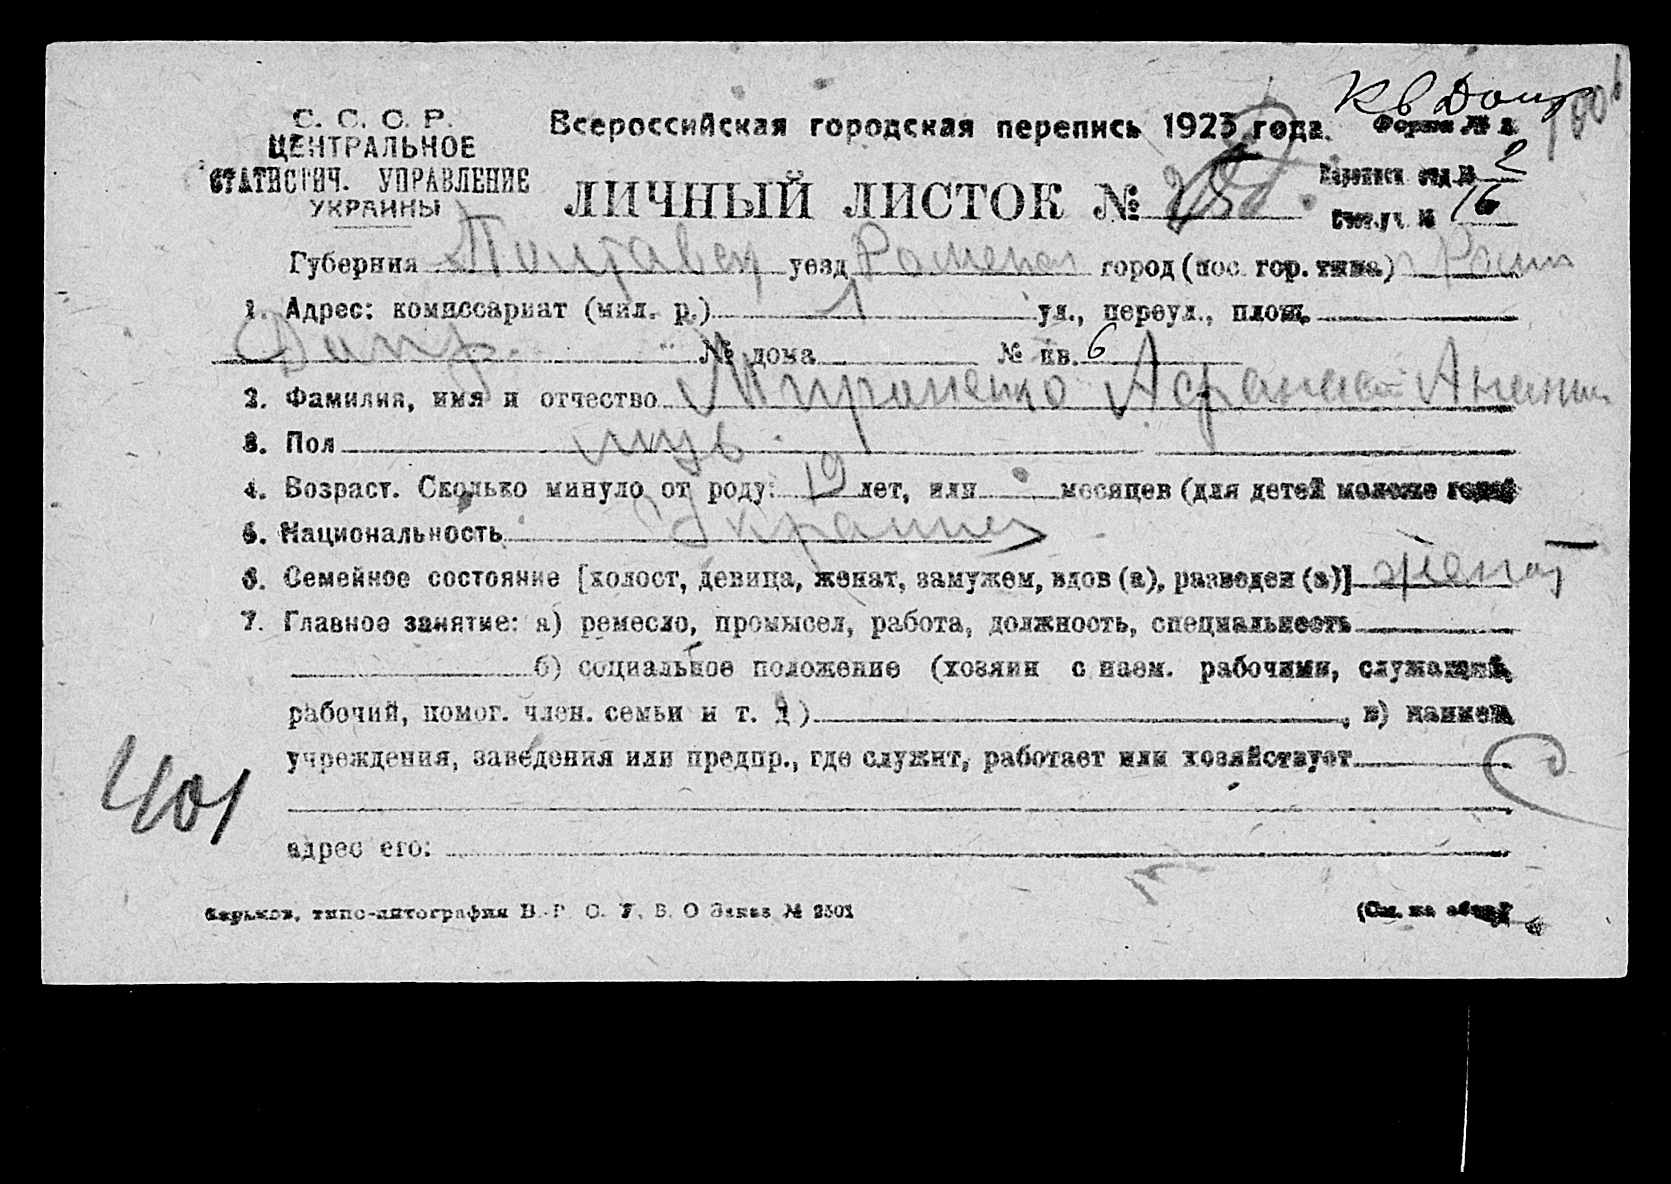 Кв Допр
С. С. С. Р.
ЦЕНТРАЛЬНОЕ
СТАТИСТИЧ. УПРАВЛЕНИЕ
УКРАИНЫ
Всероссийская городская перепись 1923 года.
Форма №
ЛИЧНЫЙ ЛИСТОК №
Переписн отд. № 2
Счетн. уч. № 16
Губерния Полтавск уезд Роменск город (пос. гор. типа) Ромн
1. Адрес: комиссариат (мил. р.) 1 ул., переул., площ.
Допр. № дома № кв. 6
2. Фамилия, имя и отчество Мироненко Афанасий Анании
3. Пол муж
4. Возраст. Сколько минуло от роду: 19 лет, или месяцев (для детей моложе года)
5. Национальность Украинец
6. Семейное состояние [холост, девица, женат, замужем, вдов (а), разведен (а)] женат
7. Главное занятие: а) ремесло, промысел, работа, должность, специальность
б) социальное положение (хозяин с наем. рабочими, служащий,
рабочий, помог. член. семьи и т. д.), в) наимен.
учреждения, заведения или предпр., где служит, работает или хозяйствует
401
адрес его:
Харьков, типо-литография В. Р. С. У. В. О Заказ № 2501
(См. на обор.)